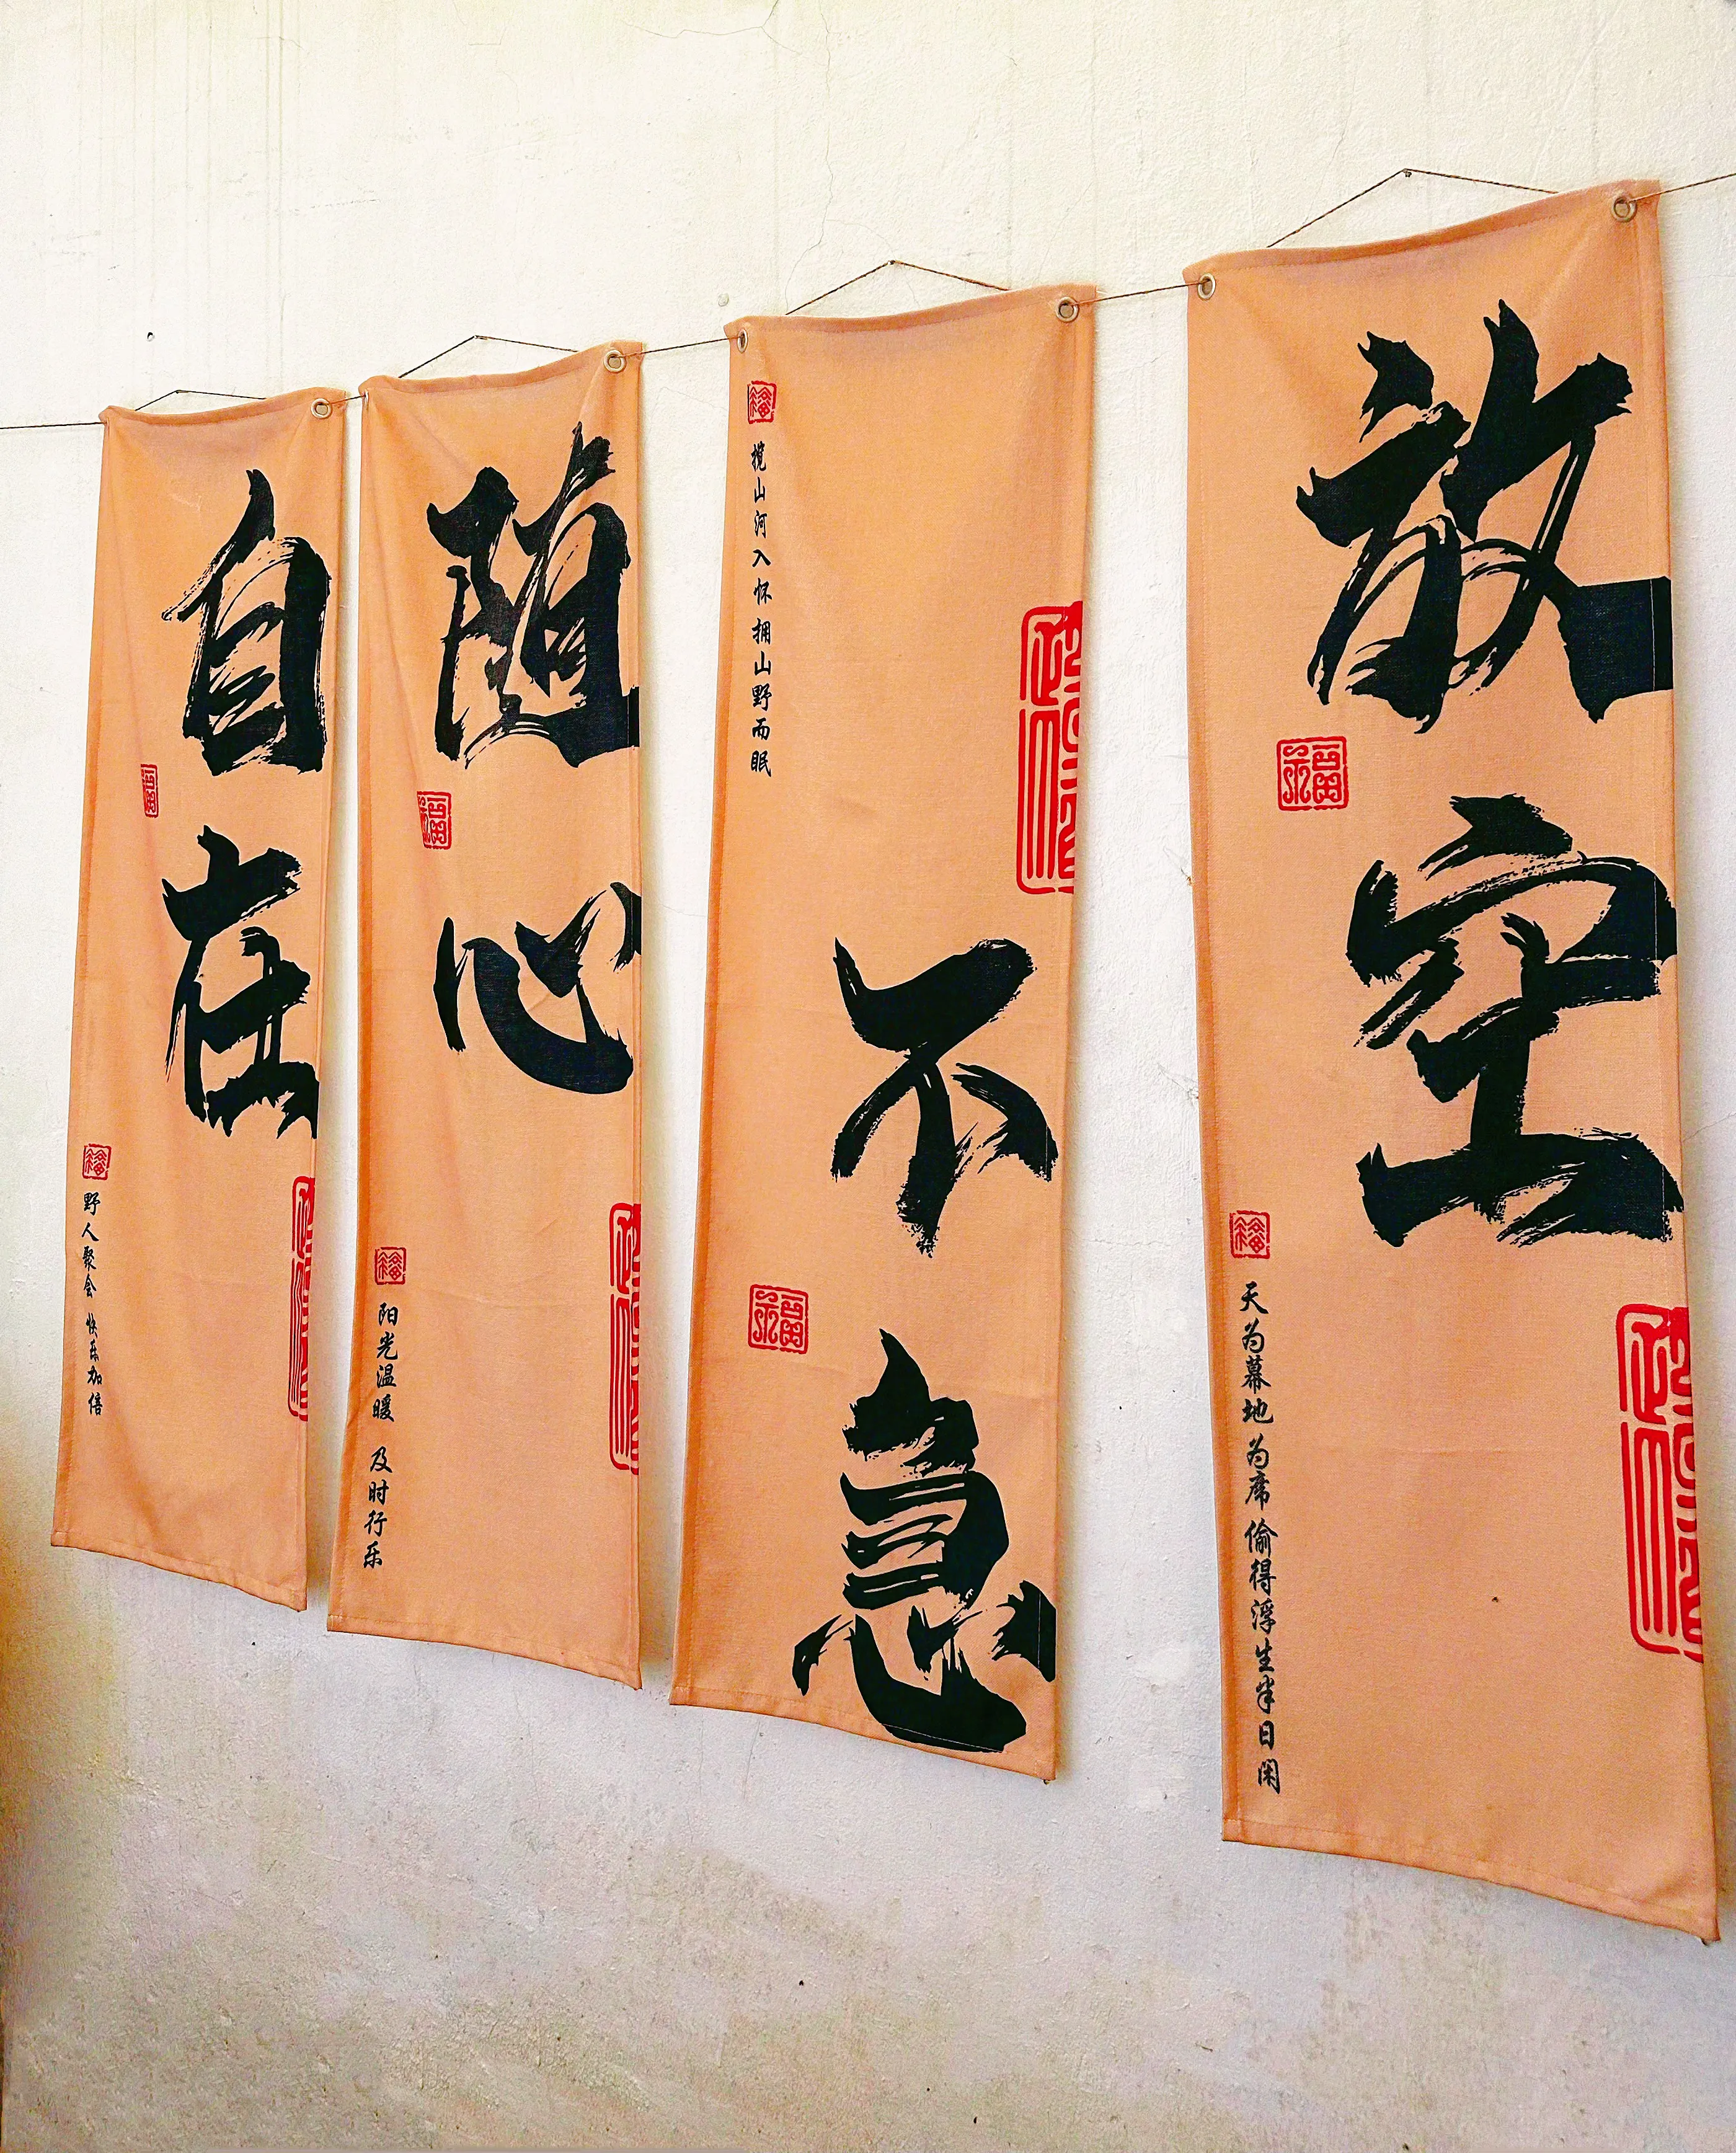 自在
野人聚会 快乐加倍
随心
阳光温暖 及时行乐
揽山河入怀 拥山野而眠
不急
放空
天为幕地为席 偷得浮生半日闲
福
福
福
福
福
福
福
福